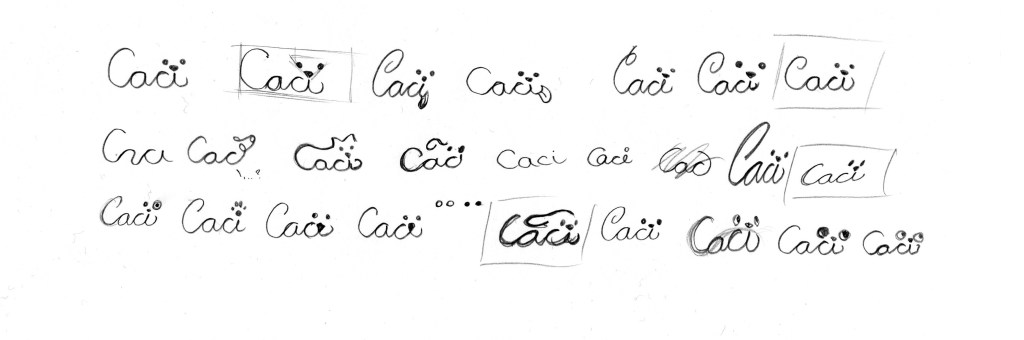 Caci Caci Caci Caci Caci Caci Caci
Caci Caci Caci Caci Caci Caci Caci Caci
Caci Caci Caci Caci Caci Caci Caci Caci Caci